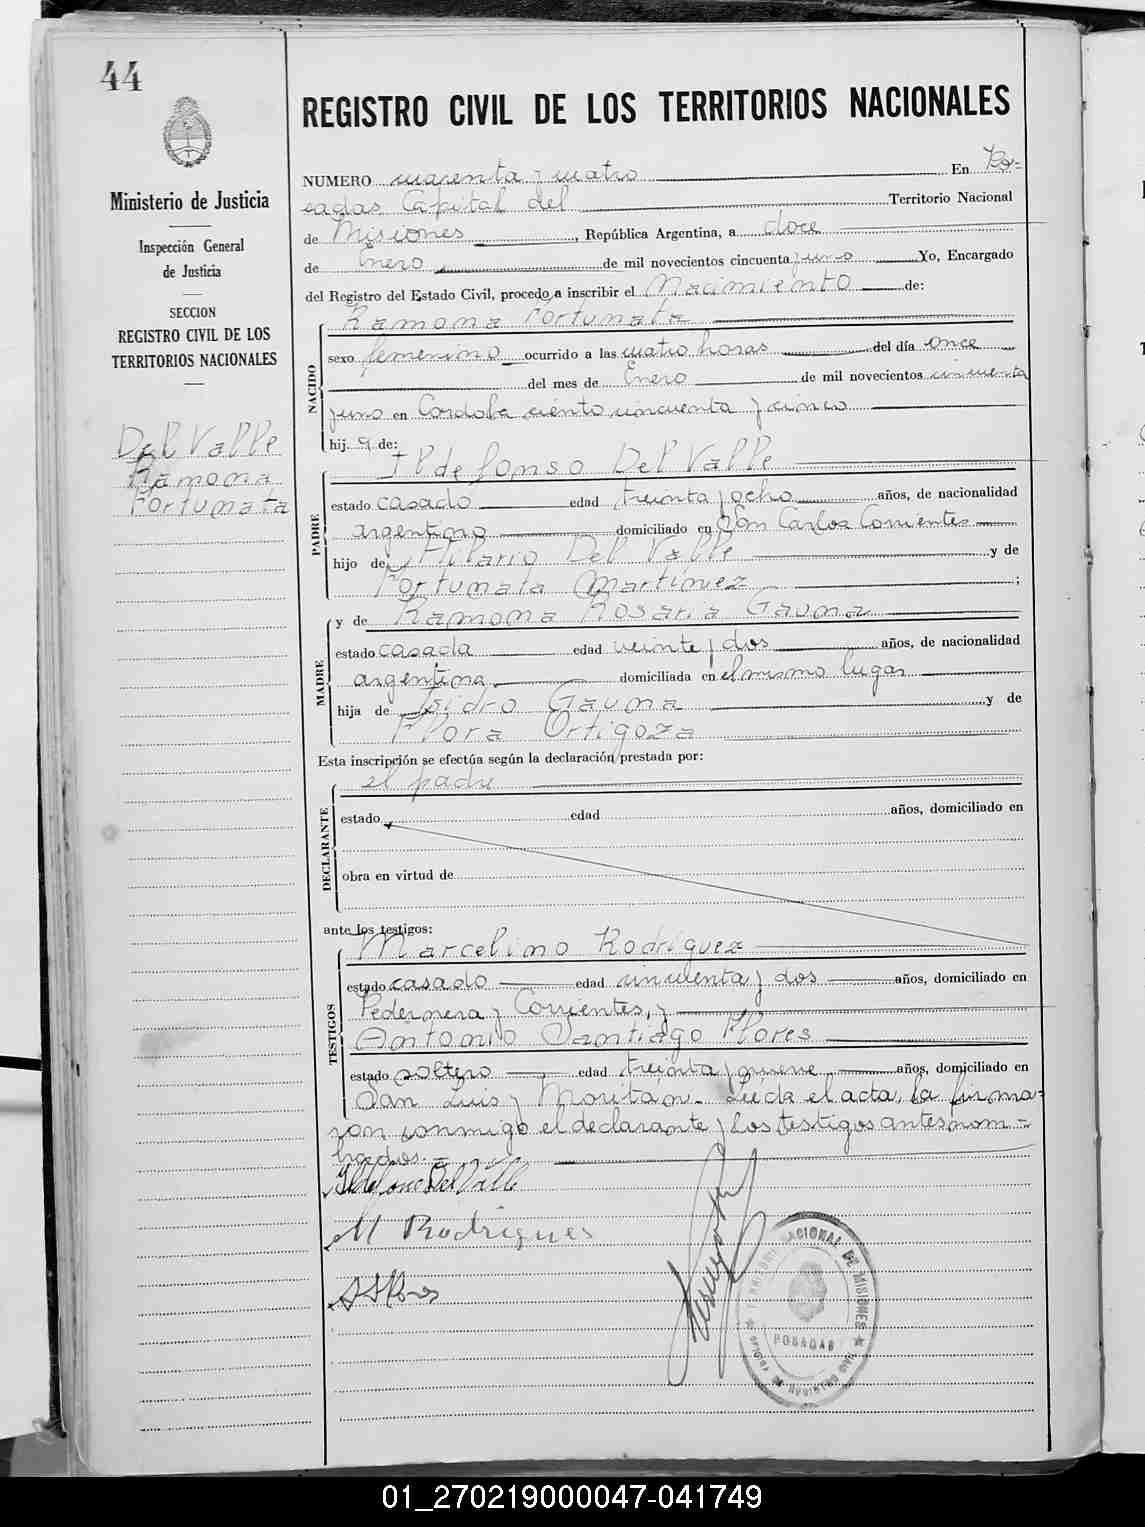 44
REGISTRO CIVIL DE LOS TERRITORIOS NACIONALES
Ministerio de Justicia
Inspección General
de Justicia
SECCION
REGISTRO CIVIL DE LOS
TERRITORIOS NACIONALES
Del Valle
Ramona
Fortunata
NUMERO cuarenta y cuatro En Po=
sadas Capital del Territorio Nacional
de Misiones, República Argentina, a doce
de Enero de mil novecientos cincuenta y uno Yo, Encargado
del Registro del Estado Civil, procedo a inscribir el Nacimiento de:
NACIDO
Ramona Fortunata
sexo femenino ocurrido a las cuatro horas del día once
del mes de Enero de mil novecientos cincuenta
y uno en Cordoba ciento cincuenta y cinco
hij a de:
PADRE
Ildefonso Del Valle
estado casado edad treinta y ocho años, de nacionalidad
argentino domiciliado en San Carlos Corrientes
hijo de Hilario Del Valle y de
Fortunata Martinez ;
MADRE
y de Ramona Rosaria Gauna
estado casada edad veinte y dos años, de nacionalidad
argentina domiciliada en el mismo lugar
hija de Isidro Gauna y de
Flora Ortigoza
Esta inscripción se efectúa según la declaración prestada por:
DECLARANTE
el padre
estado edad años, domiciliado en
obra en virtud de
ante los testigos:
TESTIGOS
Marcelino Rodriguez
estado casado edad cincuenta y dos años, domiciliado en
Pedernera y Corrientes, y
Antonio Santiago Flores
estado soltero edad treinta y nueve años, domiciliado en
San Luis y Moritan. Leida el acta, la firma=
ron conmigo el declarante y los testigos antes nom=
brados.=
Ildefonso Del Valle
M Rodrigues
NACIONAL DE MISIONES
POSADAS
01_270219000047-041749